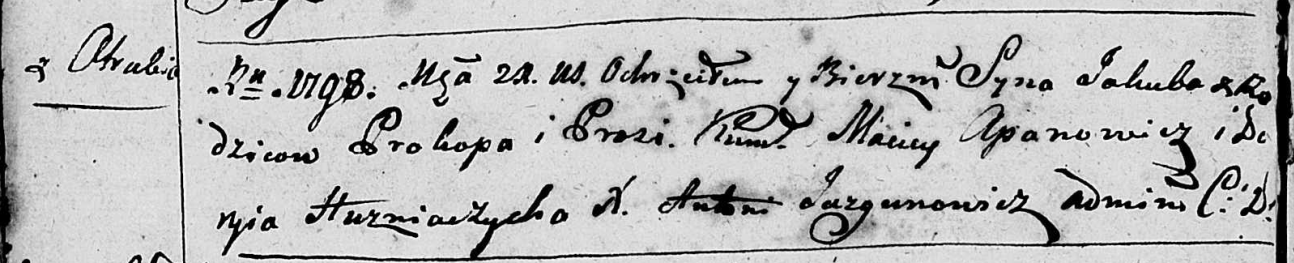 z Otrubią
Ru 1798. Mca 2X. us. Ochrzciłem y Bierzm. Syna Jakuba z Ro
dzicow Prokopa i Prosi. Kum. Maciey Apanowicz i Do
Huzniaczycha X. Antoni Jazgunowicz Admin C: D: